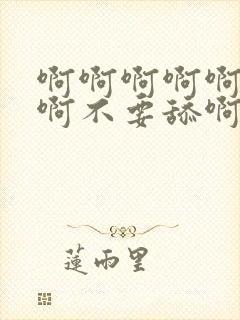 啊啊啊啊啊
啊不要舔啊
蓮雨里